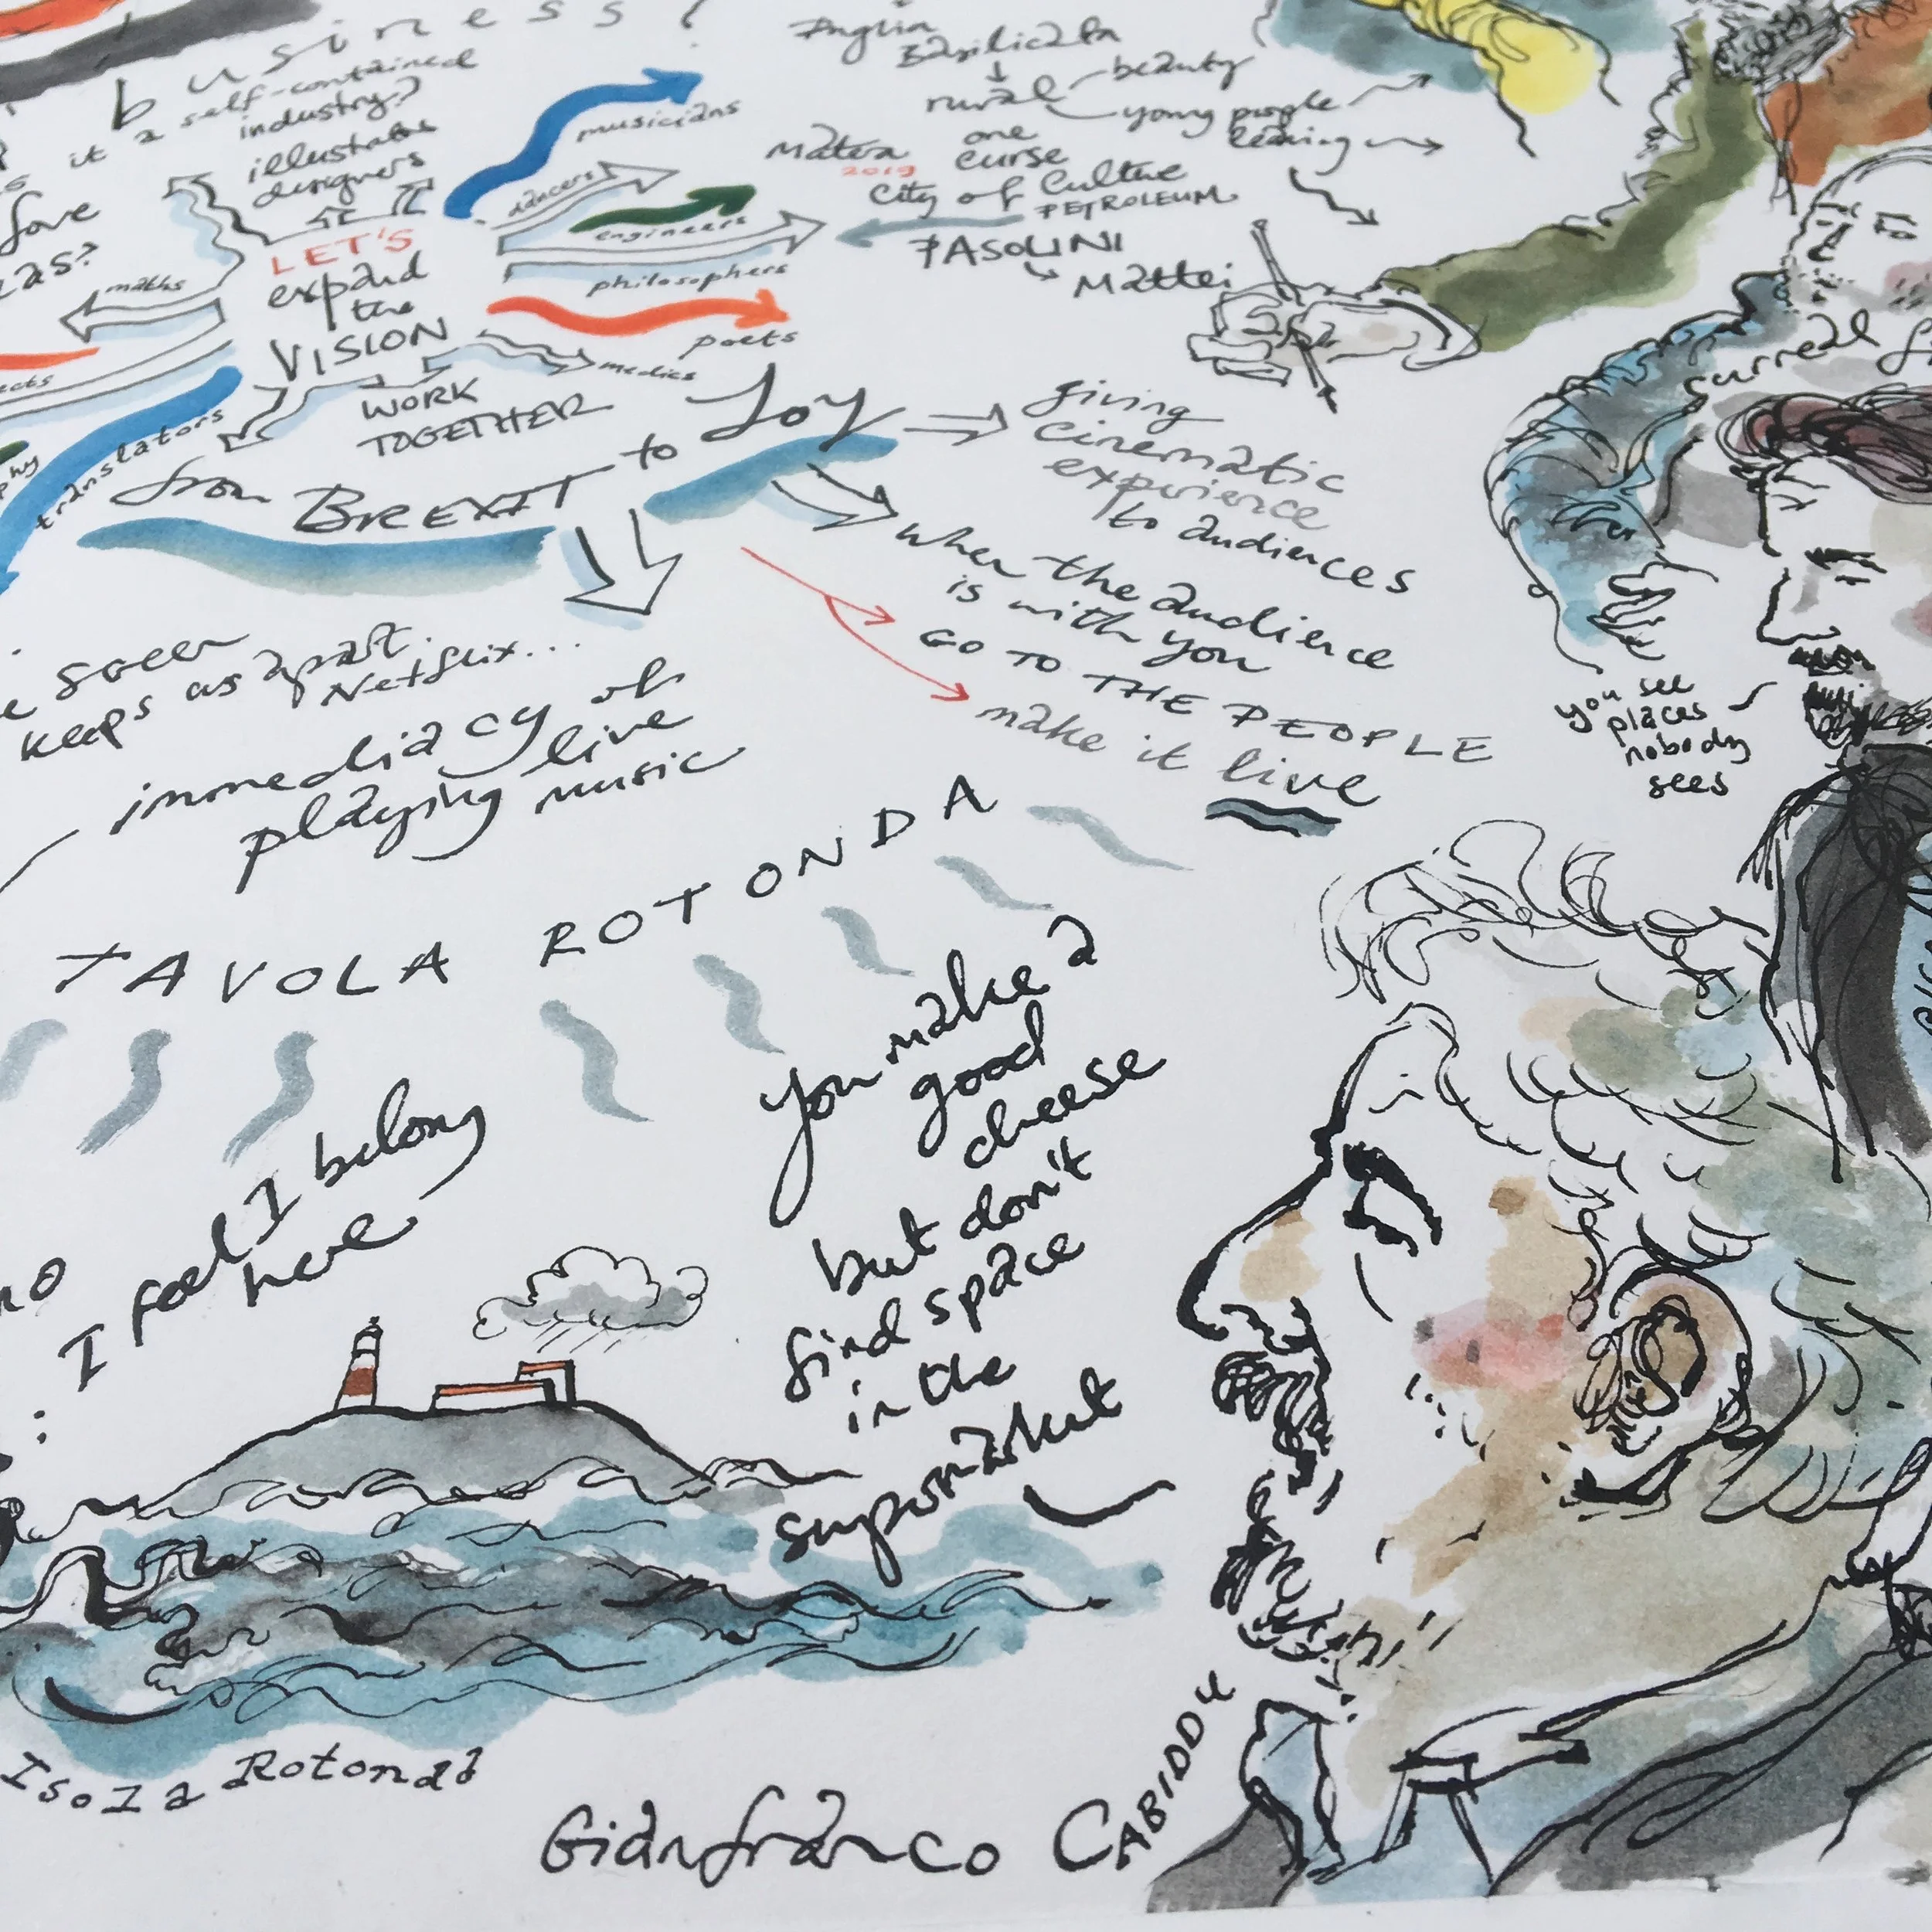 business?
it a self-contained
industry?
illustrators
designers
love
maths
LET'S
expand
the
VISION
WORK
TOGETHER
musicians
dancers
engineers
philosophers
poets
medics
translators
Anglia
Basilicata
rural
beauty
young people
leaving
Matera
2019
one
curse
City of Culture
PETROLEUM
PASOLINI
Mattei
surreal
from BREXIT to Joy
giving
cinematic
experience
to audiences
when the audience
is with you
GO TO THE PEOPLE
make it live
you see
places
nobody
sees
screen
keeps us apart
Netflix...
immediacy of
playing live
music
TAVOLA ROTONDA
I feel I belong
here
you make a
good
cheese
but don't
find space
in the
supermarket
Isola Rotonda
Gianfranco CABIDDU